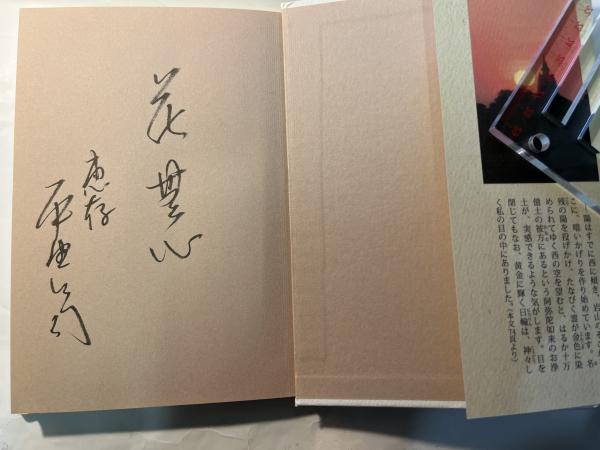 花無心
恵存
陽はすでに西に傾き、岩山のそ
こに、暗いかげりを作り始めています。名
残の陽を投げかけ、たなびく雲が金色に染
められてゆく西の空を望むと、はるか十万
億土の彼方にあるという阿弥陀如来のお浄
土が、実感できるような気がします。目を
閉じてもなお、黄金に輝く日輪は、神々し
く私の目の中にありました。（本文74頁より）